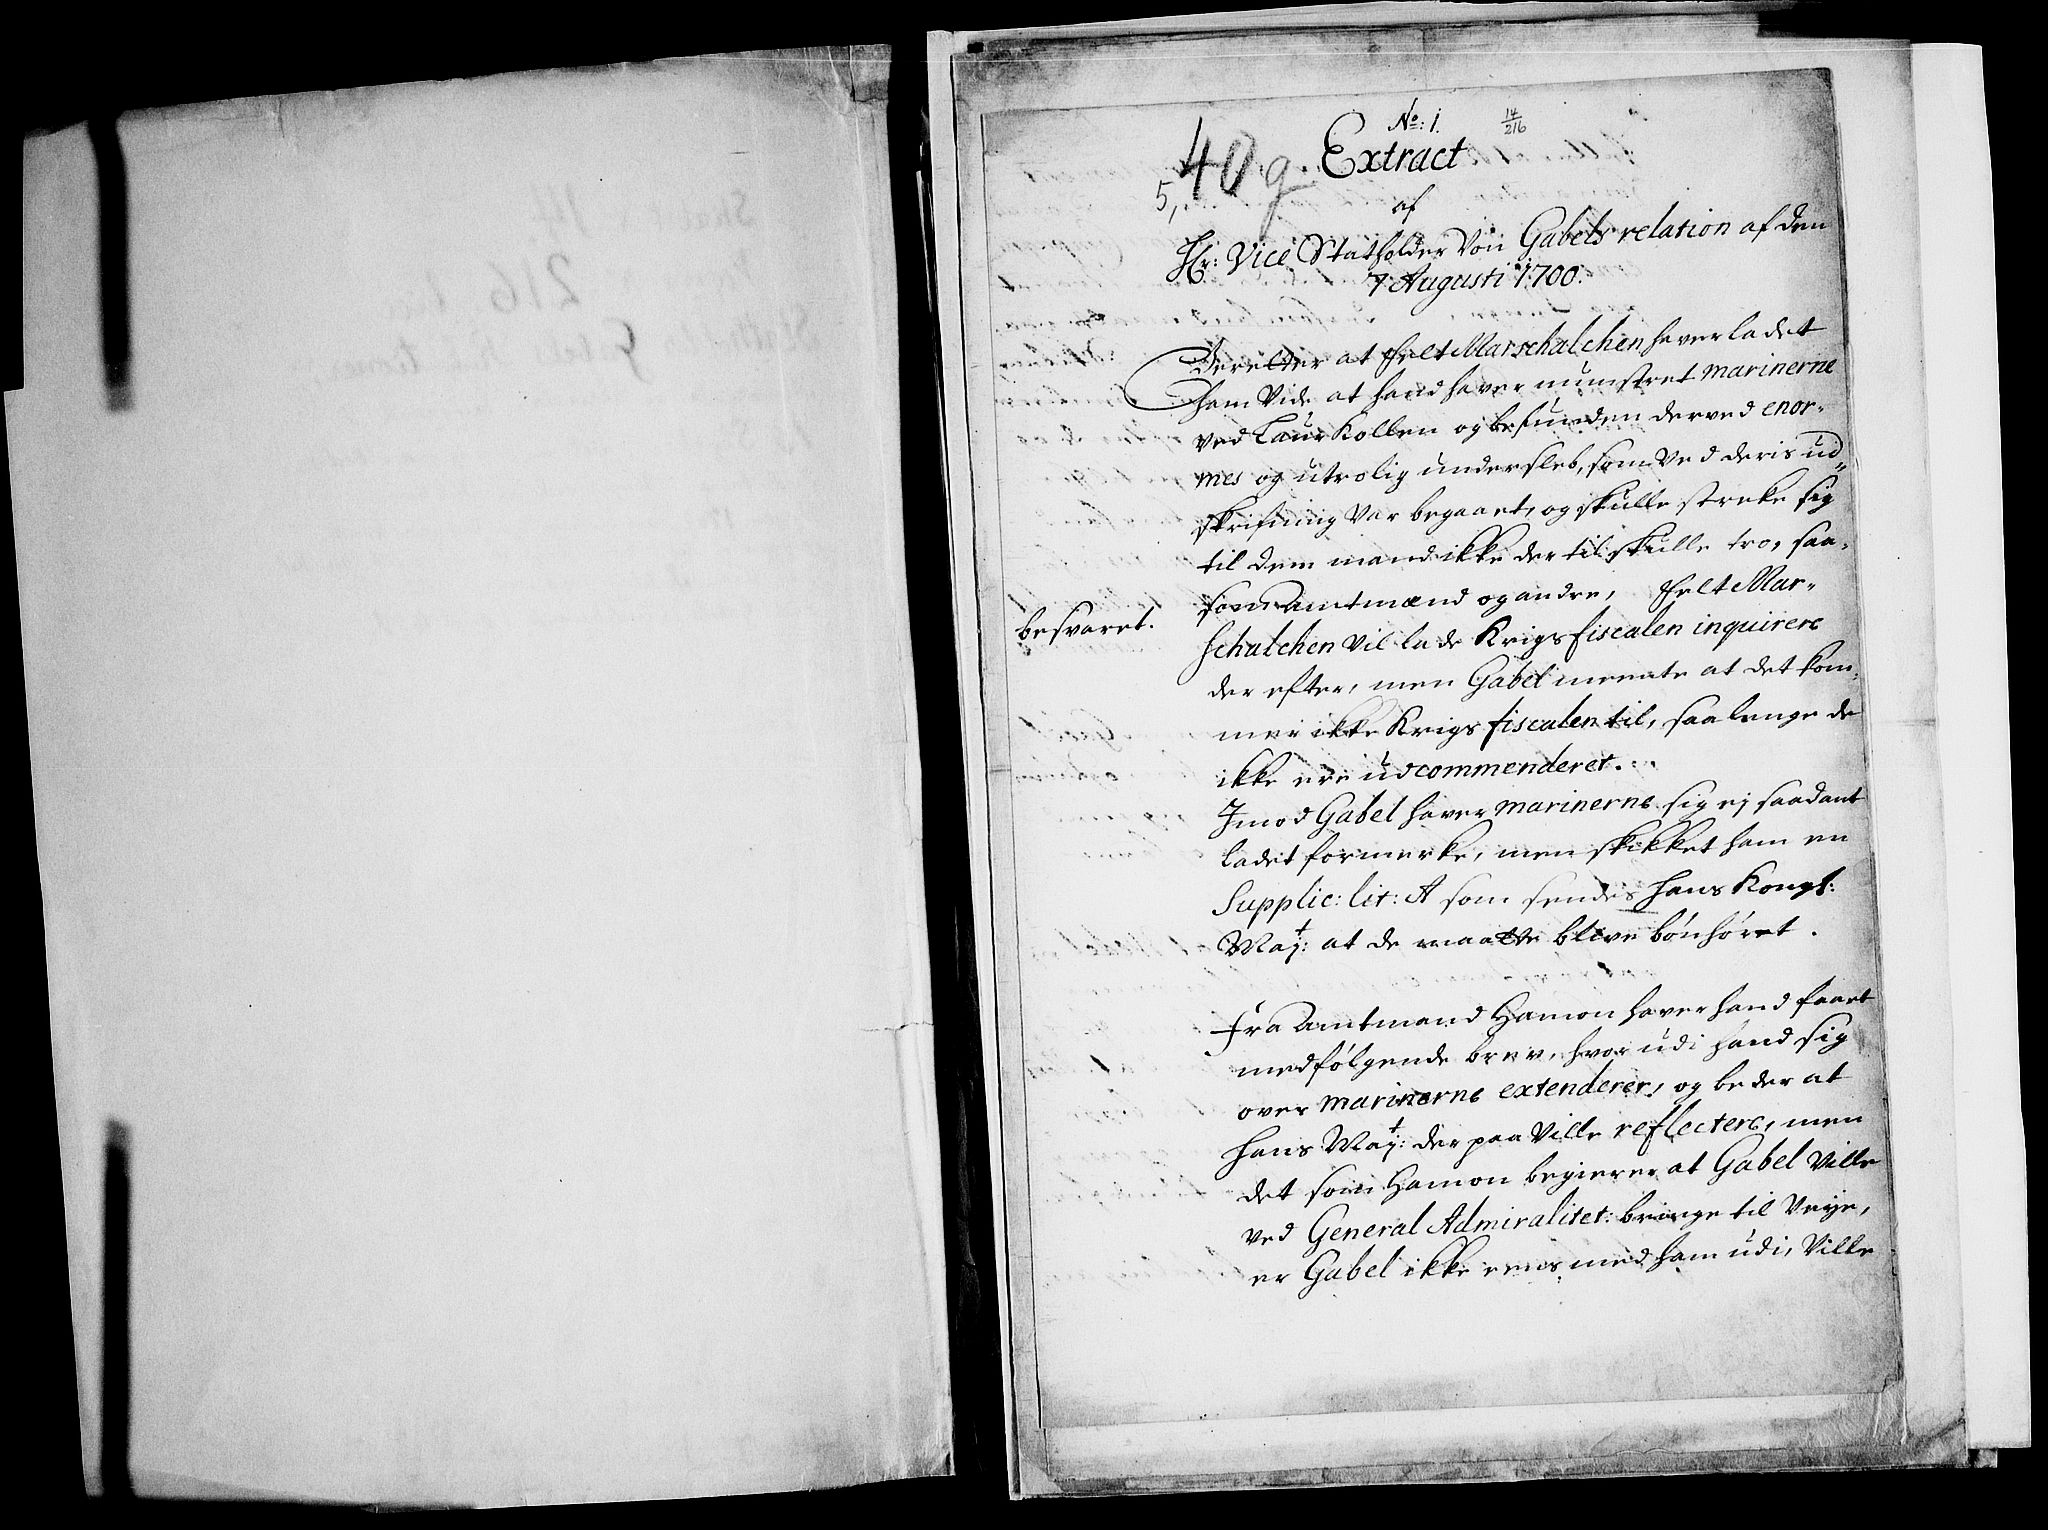 No: 1.
14/216
40 g
5,
Extract
af
Hr: Vice Statholder Von Gabels relation af den
7 Augusti 1700.
Beretter at Felt Marschalchen haver ladet
ham Vide at hand haver munstret marinerne
ved Laurkollen og befunden derved enor-
mes og utrolig undersleb, som Ved deris ud-
skrifning Var begaaet, og skulle streke sig
til dem mand ikke der til skulle tro, saa-
som Amtmænd og andre, Felt Mar-
schalchen vil lade Krigs fiscalen inquirere
der efter, men Gabel meente at det kom-
mer ikke Krigs fiscalen til, saalenge de
ikke ere udcommenderet.
besvaret.
Jmod Gabel haver marinerne sig ej saadant
ladet formerke, men skikket ham en
Supplic: lit: A som sendes hans Kongl:
Mayt: at de maatte blive bønhøret.
Fra Amtmand Hamon haver hand faaet
medfølgende brev, hvor udi hand sig
over marinerne extenderer, og beder at
hans Mayt: der paa Ville reflectere, men
det som Hamon begierer at Gabel Ville
ved General Admiralitet: bringe til Veye,
er Gabel ikke eens med ham udi, Ville